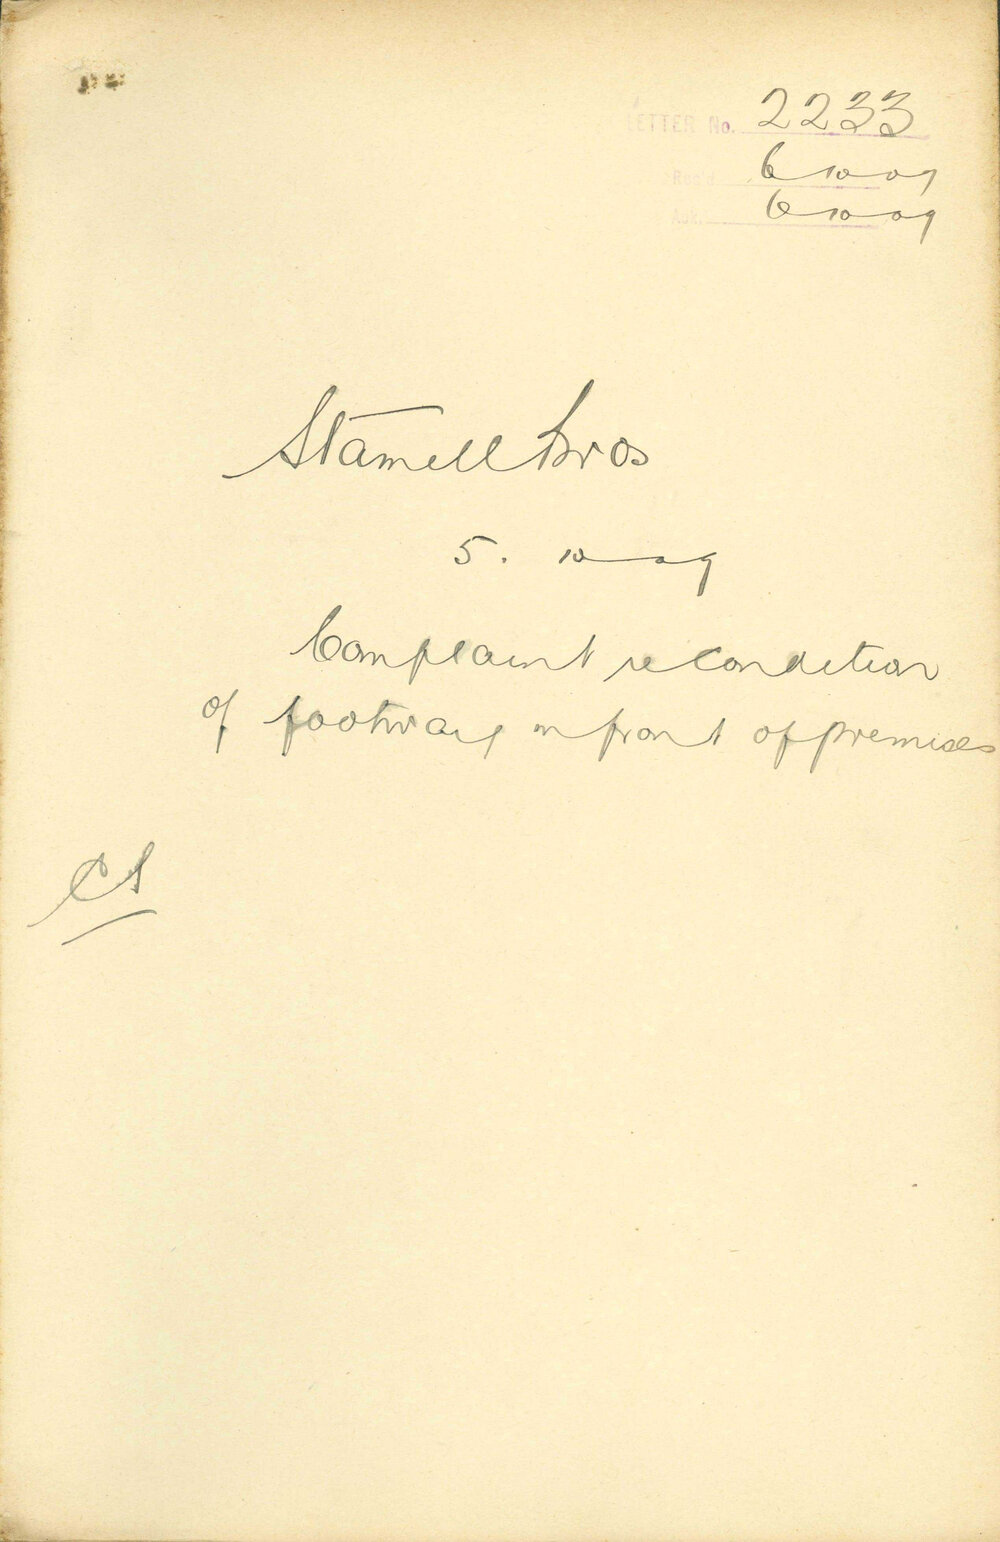 LETTER No. 2233
Rec'd 6 10 09
Ack. 6 10 09
Stamell Bros
5. 10 09
Complaint re condition
of footway in front of premises
CS